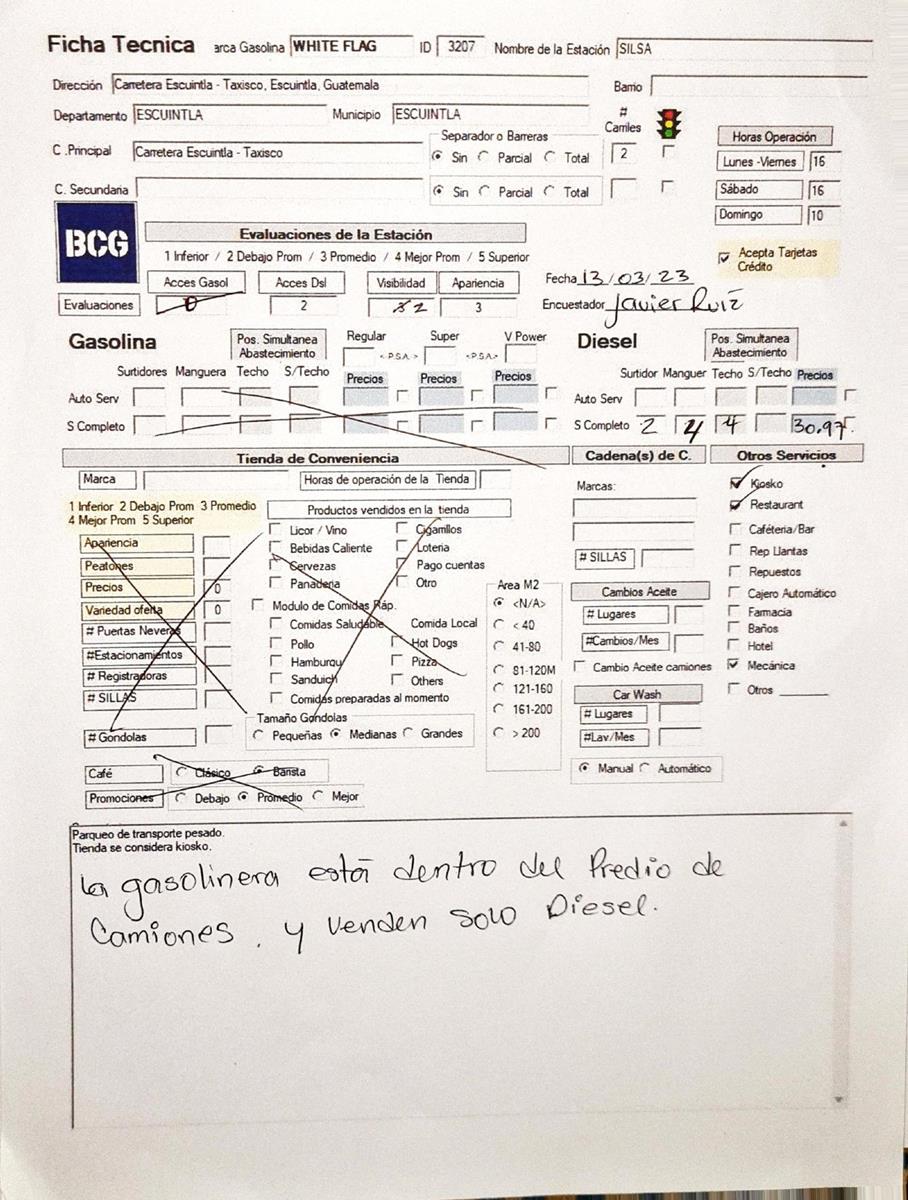 Ficha Tecnica arca Gasolina WHITE FLAG ID 3207 Nombre de la Estación SILSA
Dirección Carretera Escuintla - Taxisco, Escuintla, Guatemala Barrio
Departamento ESCUINTLA Municipio ESCUINTLA # Carriles
C .Principal Carretera Escuintla - Taxisco Separador o Barreras Sin Parcial Total 2
C. Secundaria Sin Parcial Total
Horas Operación
Lunes -Viernes 16
Sábado 16
Domingo 10
BCG
Evaluaciones de la Estación
1 Inferior / 2 Debajo Prom / 3 Promedio / 4 Mejor Prom / 5 Superior
Acepta Tarjetas Crédito
Acces Gasol Acces Dsl Visibilidad Apariencia
Fecha 13/03/23
Evaluaciones 0 2 2 3
Encuestador Javier Ruiz
Gasolina Pos. Simultanea Abastecimiento Regular <.P.S.A.> Super <.P.S.A.> V Power
Diesel Pos. Simultanea Abastecimiento
Surtidores Manguera Techo S/Techo Precios Precios Precios
Surtidor Manguer Techo S/Techo Precios
Auto Serv
Auto Serv
S Completo
S Completo 2 4 4 30.97
Tienda de Conveniencia
Cadena(s) de C.
Otros Servicios
Marca Horas de operación de la Tienda
1 Inferior 2 Debajo Prom 3 Promedio
4 Mejor Prom 5 Superior
Apariencia
Peatones
Precios 0
Variedad oferta 0
# Puertas Neveras
#Estacionamientos
# Registradoras
# SILLAS
# Gondolas
Productos vendidos en la tienda
Licor / Vino Cigarrillos
Bebidas Caliente Loteria
Cervezas Pago cuentas
Panaderia Otro
Modulo de Comidas Ráp.
Comidas Saludable Comida Local
Pollo Hot Dogs
Hamburqu Pizza
Sanduich Others
Comidas preparadas al momento
Tamaño Gondolas
Pequeñas Medianas Grandes
Area M2
<N/A>
< 40
41-80
81-120M
121-160
161-200
> 200
Marcas:
# SILLAS
Cambios Aceite
# Lugares
#Cambios/Mes
Cambio Aceite camiones
Car Wash
# Lugares
#Lav/Mes
Manual Automático
Kiosko
Restaurant
Caféteria/Bar
Rep Llantas
Repuestos
Cajero Automático
Farmacia
Baños
Hotel
Mecánica
Otros
Café Clásico Barista
Promociones Debajo Promedio Mejor
Parqueo de transporte pesado.
Tienda se considera kiosko.
La gasolinera está dentro del Predio de
Camiones. y venden solo Diesel.